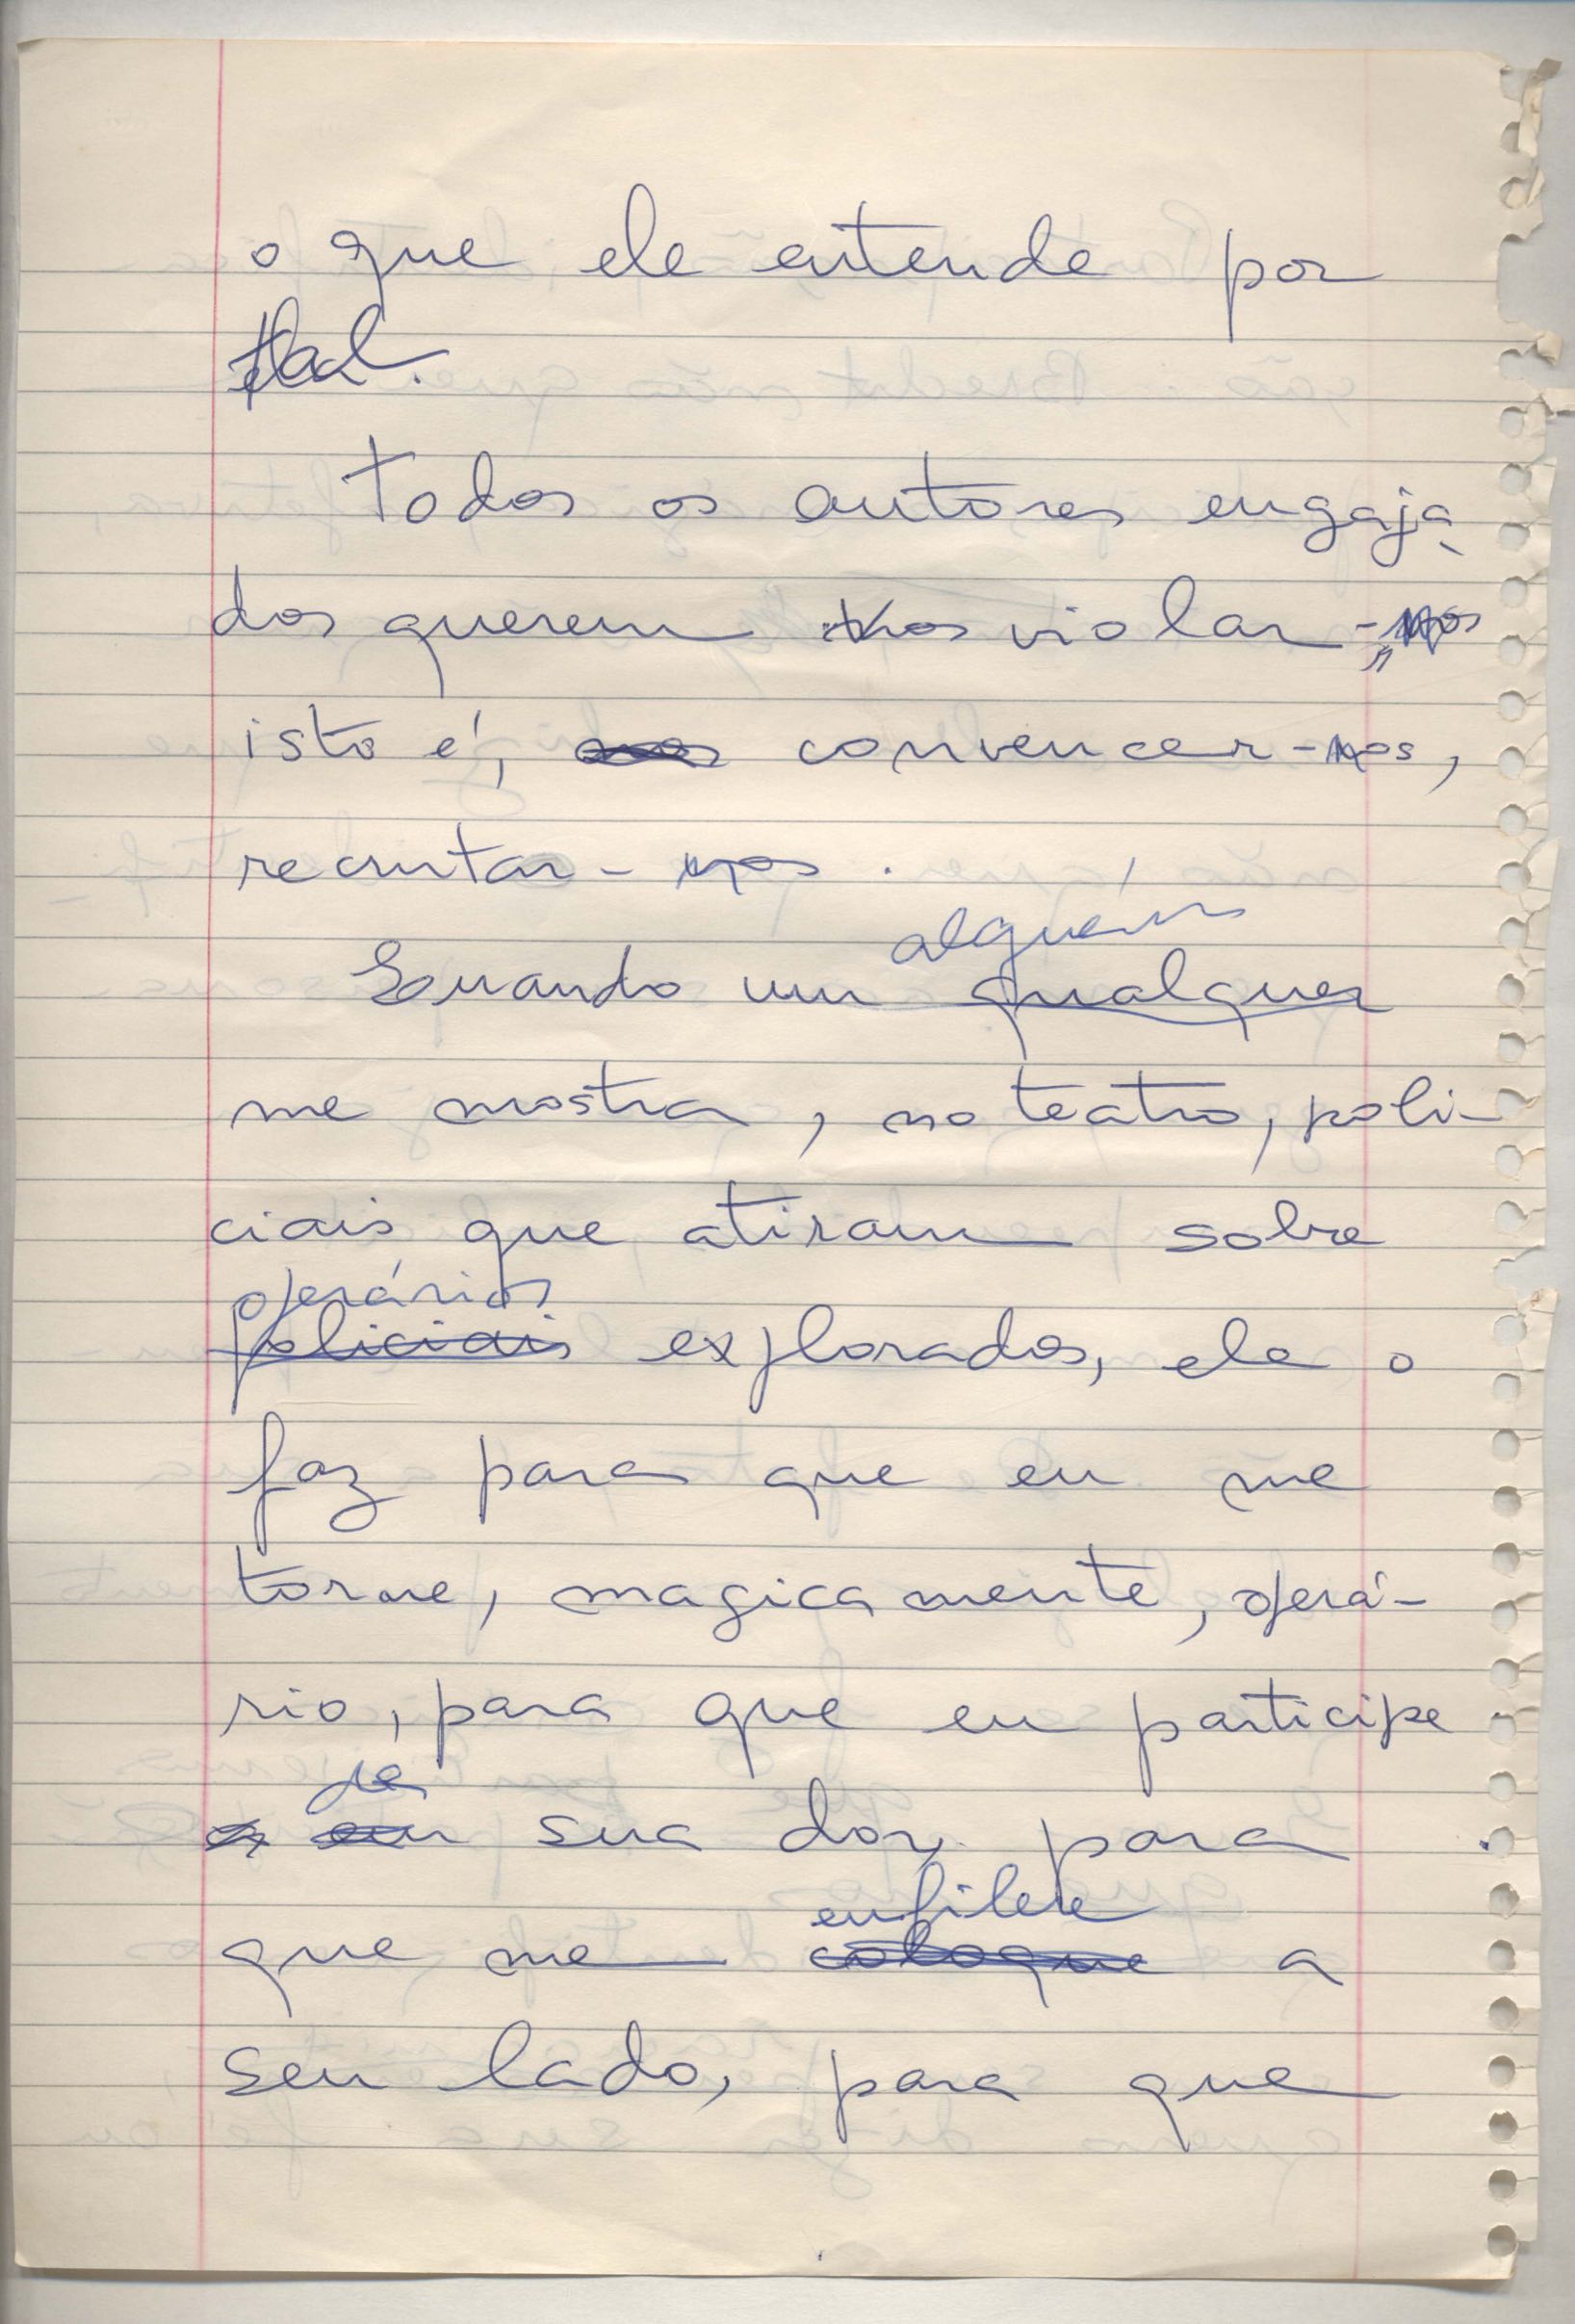 o que ele entende por
tal.
Todos os autores engaja
dos querem violar-nos,
isto é, convencer-nos,
recrutar-nos.
alguém
Quando um qualquer
me mostra, no teatro, poli-
ciais que atiram sobre
operários
policiais explorados, ele o
faz para que eu me
torne, magicamente, operá-
rio, para que eu participe
de
sua dor, para
enfileire
que me coloque a
seu lado, para que